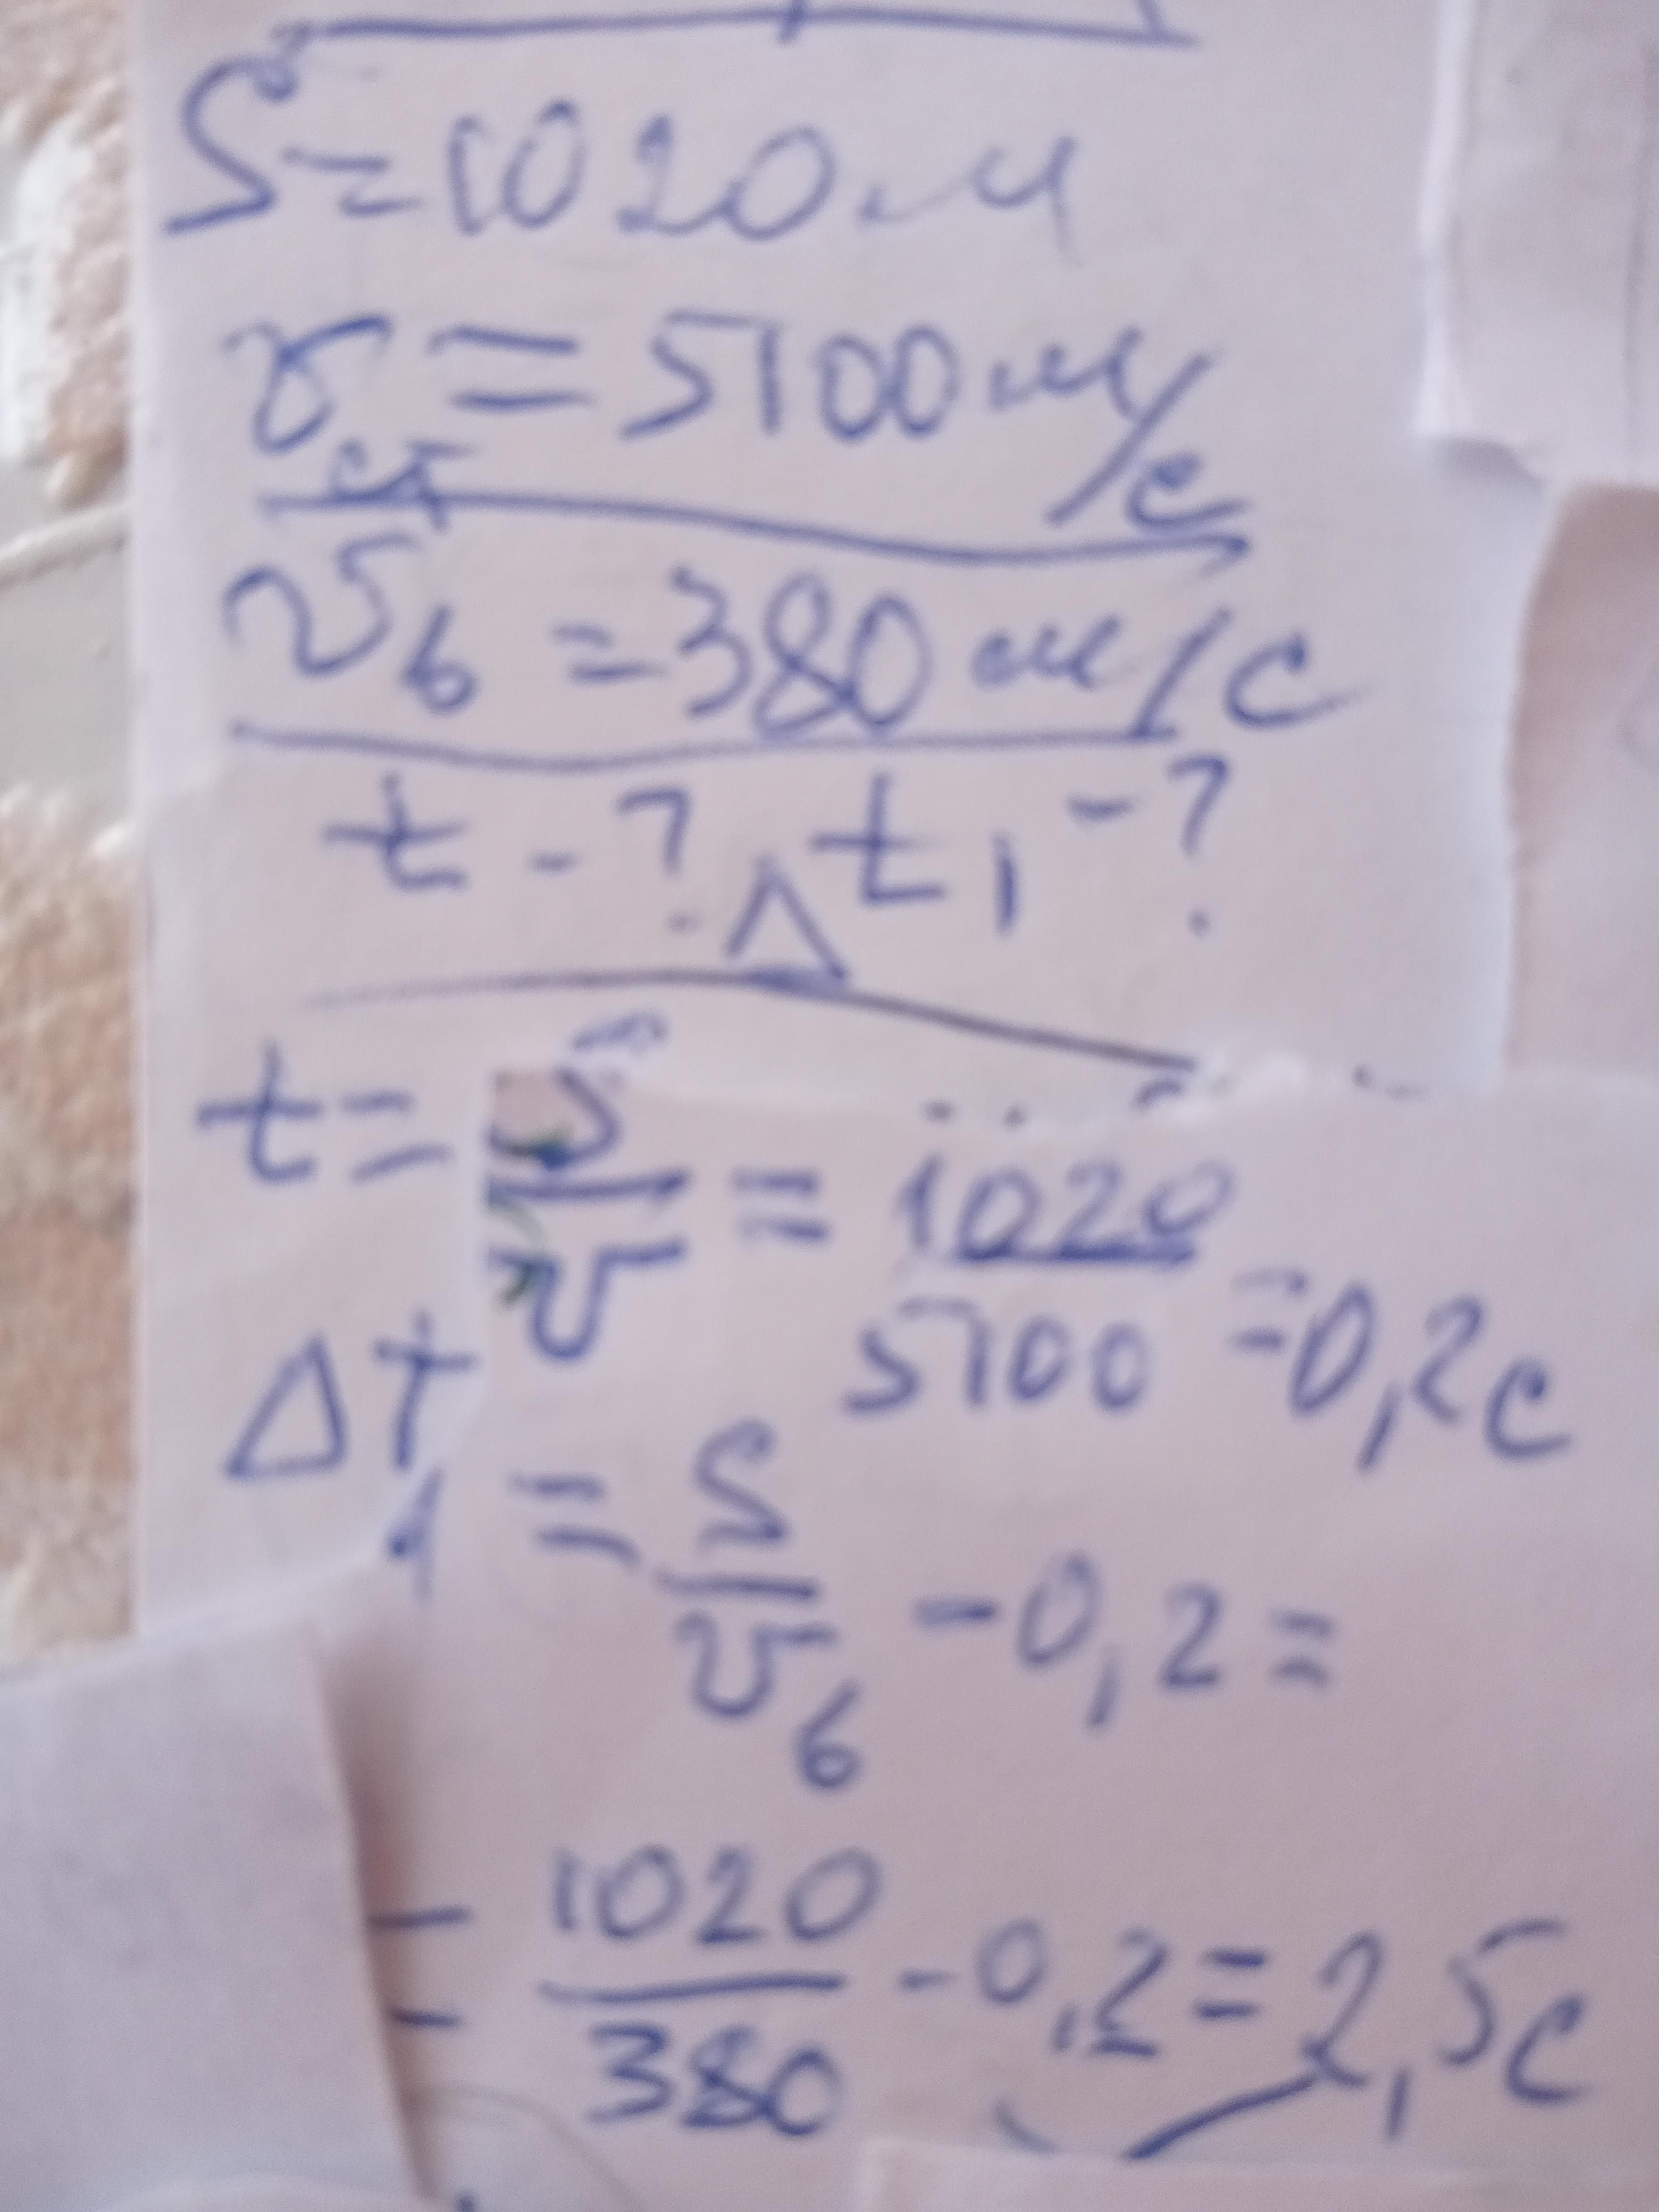 S=1020 м
v ст = 5100 м/с
v в = 380 м/с
t - ? Δt₁ - ?
t = S/v = 1020/5100 = 0,2 с
Δt₁ = S/v в - 0,2 =
= 1020/380 - 0,2 = 2,5 с